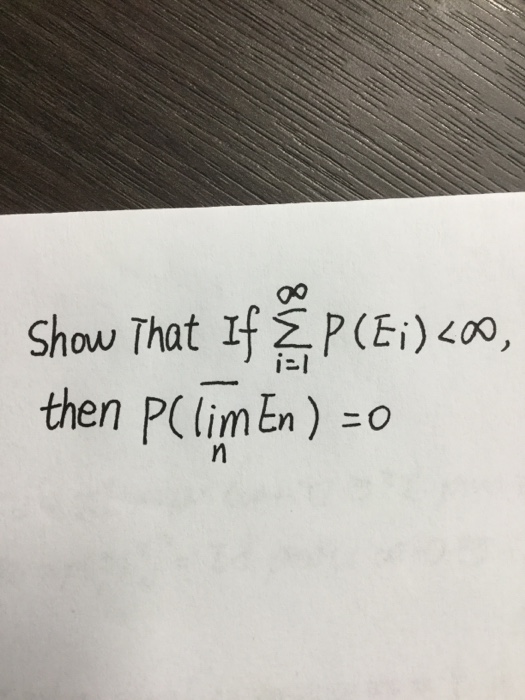 Show That If ∞∑i=1 P(Ei) <∞,
then P( lim̅n En ) = 0